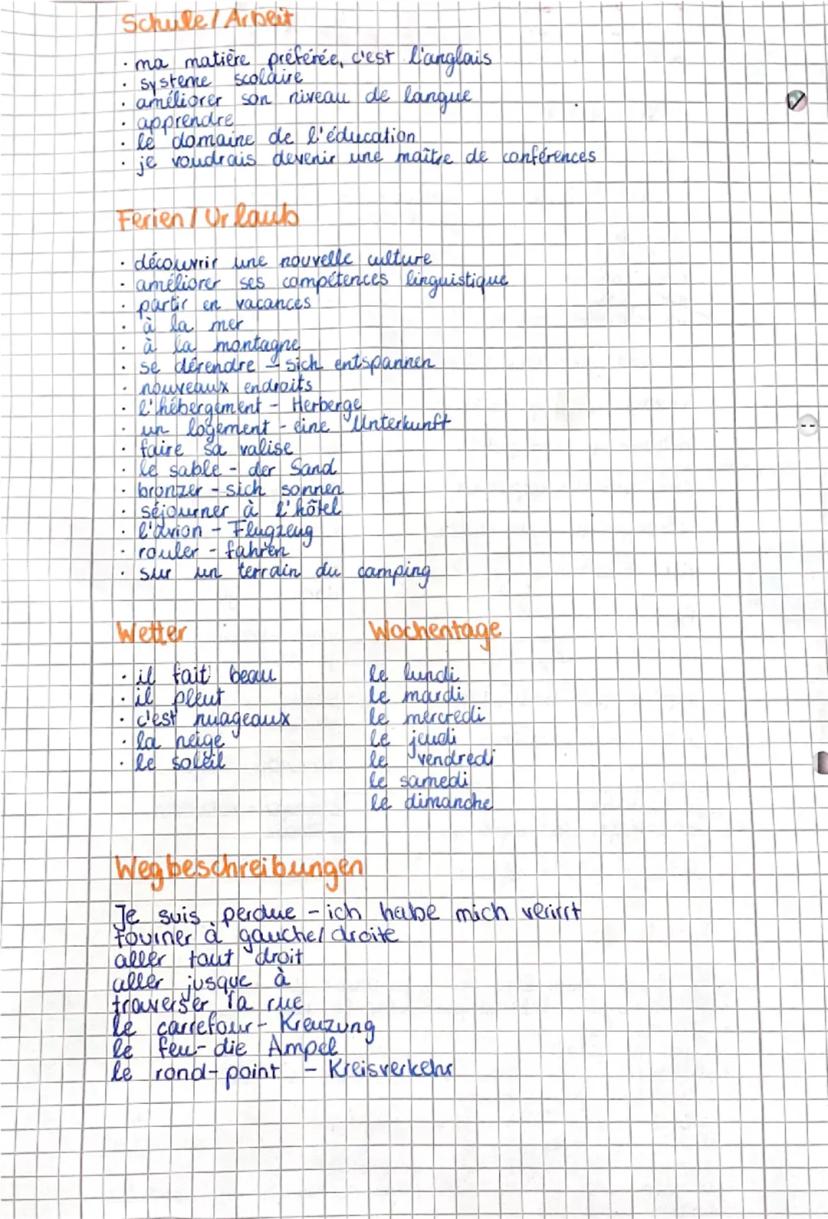 Schule / Arbeit
· ma matière préférée, c'est l'anglais
· système scolaire
· améliorer son niveau de langue
· apprendre
· le domaine de l'éducation
· je voudrais devenir une maître de conférences
Ferien / Urlaub
· découvrir une nouvelle culture
· améliorer ses compétences linguistique
· partir en vacances
· à la mer
· à la montagne
· se dérendre - sich entspannen
· nouveaux endroits
· l'hébergement - Herberge
· un logement - eine Unterkunft
· faire sa valise
· le sable - der Sand
· bronzer - sich sonnen
· séjourner à l'hôtel
· l'avion - Flugzeug
· rouler - fahren
· sur un terrain du camping
Wetter
· il fait beau
· il pleut
· c'est nuageaux
· la neige
· le soleil
Wochentage
le lundi
le mardi
le mercredi
le jeudi
le vendredi
le samedi
le dimanche
Wegbeschreibungen
Je suis perdue - ich habe mich verirrt
touiner à gauche/droite
aller tout droit
aller jusque à
traverser la rue
le carrefour - Kreuzung
le feu - die Ampel
le rond-point - Kreisverkehr